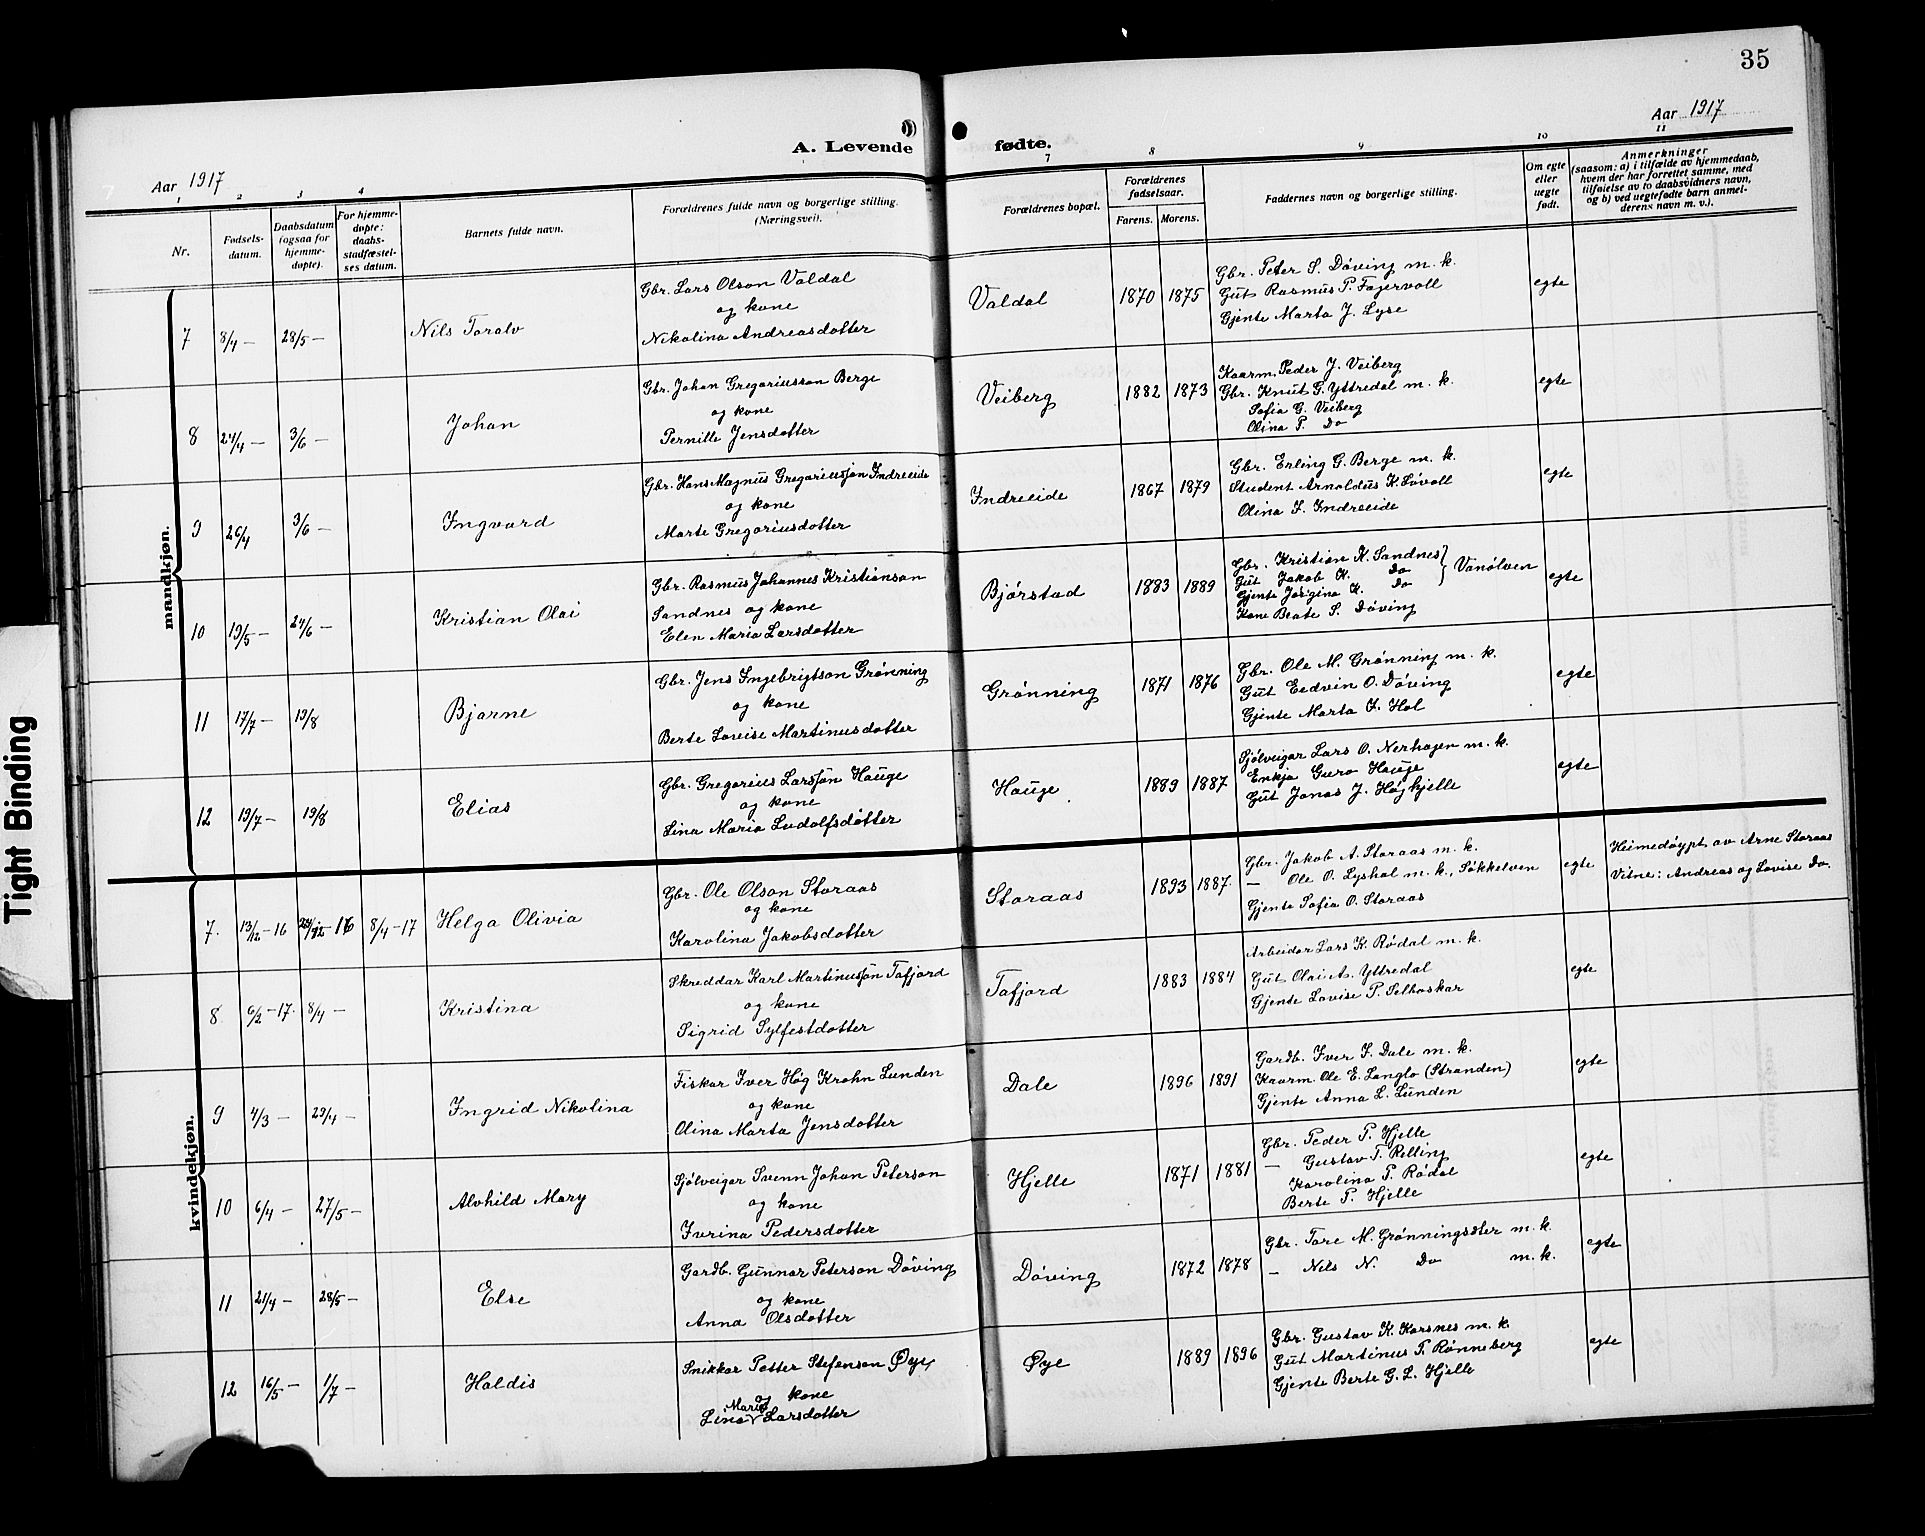 35
Aar 1917
A. Levende fødte.
Aar 1917
1 2 3 4 7 8 9 10 11
Nr.
Fødsels-
datum.
Daabsdatum
(ogsaa for
hjemme-
døpte).
For hjemme-
døpte:
daabs-
stadfæstel-
ses datum.
Barnets fulde navn.
Forældrenes fulde navn og borgerlige stilling.
(Næringsvei).
Forældrenes bopæl.
Forældrenes
fødselsaar.
Farens. Morens.
Faddernes navn og borgerlige stilling.
Om egte
eller
uegte
født.
Anmerkninger
(saasom: a) i tilfælde av hjemmedaab,
hvem der har forrettet samme, med
tilføielse av to daabsvidners navn,
og b) ved uegtefødte barn anmel-
derens navn m. v.).
mandkjøn.
7 8/4 – 28/5 – Nils Toralv
Gbr. Lars Olson Valdal
og kone
Nikolina Andreasdotter
Valdal 1870 1875
Gbr. Peter S. Døving m. k.
Gut Rasmus P. Fagervoll
Gjente Marta J. Lyse
egte
8 24/4 – 3/6 – Johan
Gbr. Johan Gregoriusson Berge
og kone
Pernille Jensdotter
Veiberg 1882 1873
Kaarm. Peder J. Veiberg
Gbr. Knut G. Yttredal m. k.
Sofia G. Veiberg
Olina P. Do
egte
9 26/4 3/6 – Ingvard
Gbr. Hans Magnus Gregoriusson Indreeide
og kone
Marte Gregoriusdotter
Indreeide 1867 1879
Gbr. Erling G. Berge m. k.
Student Arnoldus K. Løvoll
Olina I. Indreeide
egte
10 19/5 – 24/6 – Kristian Olai
Gbr. Rasmus Johannes Kristianson
Sandnes og kone
Elen Maria Larsdotter
Bjørstad 1883 1889
Gbr. Kristian K. Sandnes } Vanølven
Gut Jakob K. Do
Gjente Jørgina K. Do
Kone Beate S. Døving
egte
11 17/7 – 19/8 Bjarne
Gbr. Jens Ingebrigtson Grønning
og kone
Berte Lovise Martinusdotter
Grønning 1871 1876
Gbr. Ole M. Grønning m. k.
Gut Eedvin O. Døving
Gjente Marta I. Hol
egte
12 19/7 – 19/8 Elias
Gbr. Gregorius Larsson Hauge
og kone
Lina Maria Ludolfsdotter
Hauge 1889 1887
Sjølveigar Lars O. Nerhagen m. k.
Enkja Guro Hauge
Gut Jonas J. Høghjelle
egte
kvindekjøn.
7. 13/12 – 16 24/12 – 16 8/4 – 17 Helga Olivia
Gbr. Ole Olson Storaas
og kone
Karolina Jakobsdotter
Storaas 1893 1887.
Gbr. Jakob A. Storaas m. k.
— Ole O. Lyshol m. k., Søkkelven
Gjente Sofia O. Storaas
egte
Heimedøypt av Arne Storaas
Vitne: Andreas og Lovise Do.
8 6/2 – 17. 8/4 – Kristina
Skreddar Karl Martinusson Tafjord
og kone
Sigrid Sylfestdotter
Tafjord 1883 1884
Arbeidar Lars K. Rødal m. k.
Gut Olai A. Yttredal
Gjente Lovise P. Selboskar
egte
9 4/3 – 29/4 – Ingrid Nikolina
Fiskar Iver Høg Krohn Lunden
og kone
Olina Marta Jensdotter
Dale 1896 1891
Gardb. Iver I. Dale m. k.
Kaarm. Ole E. Langlo (Stranden)
Gjente Anna L. Lunden
egte
10 6/4 – 27/5 – Alvhild Mary
Sjølveigar Svenn Johan Peterson
og kone
Iverina Pedersdotter
Hjelle 1871 1881
Gbr. Peder P. Hjelle
— Gustav T. Relling
Karolina P. Rødal
Berte P. Hjelle
egte
11 21/4 – 28/5 – Else
Gardb. Gunnar Peterson Døving
og kone
Anna Olsdotter
Døving 1872 1878
Gbr. Tore M. Grønningsæter m. k.
— Nils N. Do m. k.
egte
12 16/5 – 1/7 – Haldis
Snikkar Petter Stefenson Øye,
og kone
Lina Maria Larsdotter
Øye 1889 1896
Gbr. Gustav K. Korsnes m. k.
Gut Martinus P. Rønneberg
Gjente Berte G. L. Hjelle
egte
Tight Binding